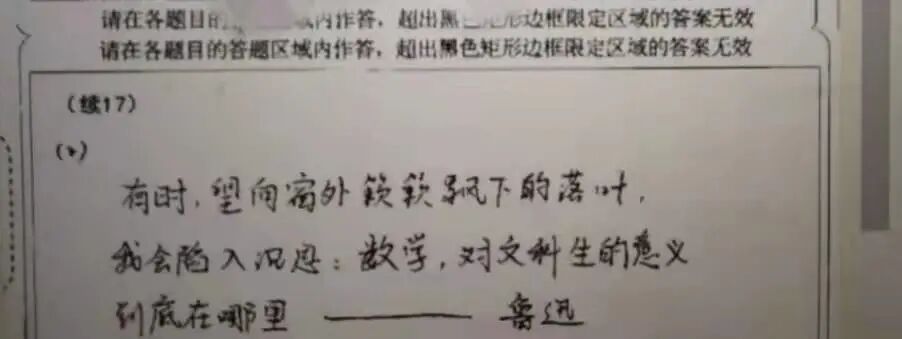 请在各题目的 域内作答，超出黑色矩形边框限定区域的答案无效
请在各题目的答题区域内作答，超出黑色矩形边框限定区域的答案无效
（续17）
有时，望向窗外簌簌飘下的落叶，
我会陷入沉思：数学，对文科生的意义
到底在哪里 ——— 鲁迅